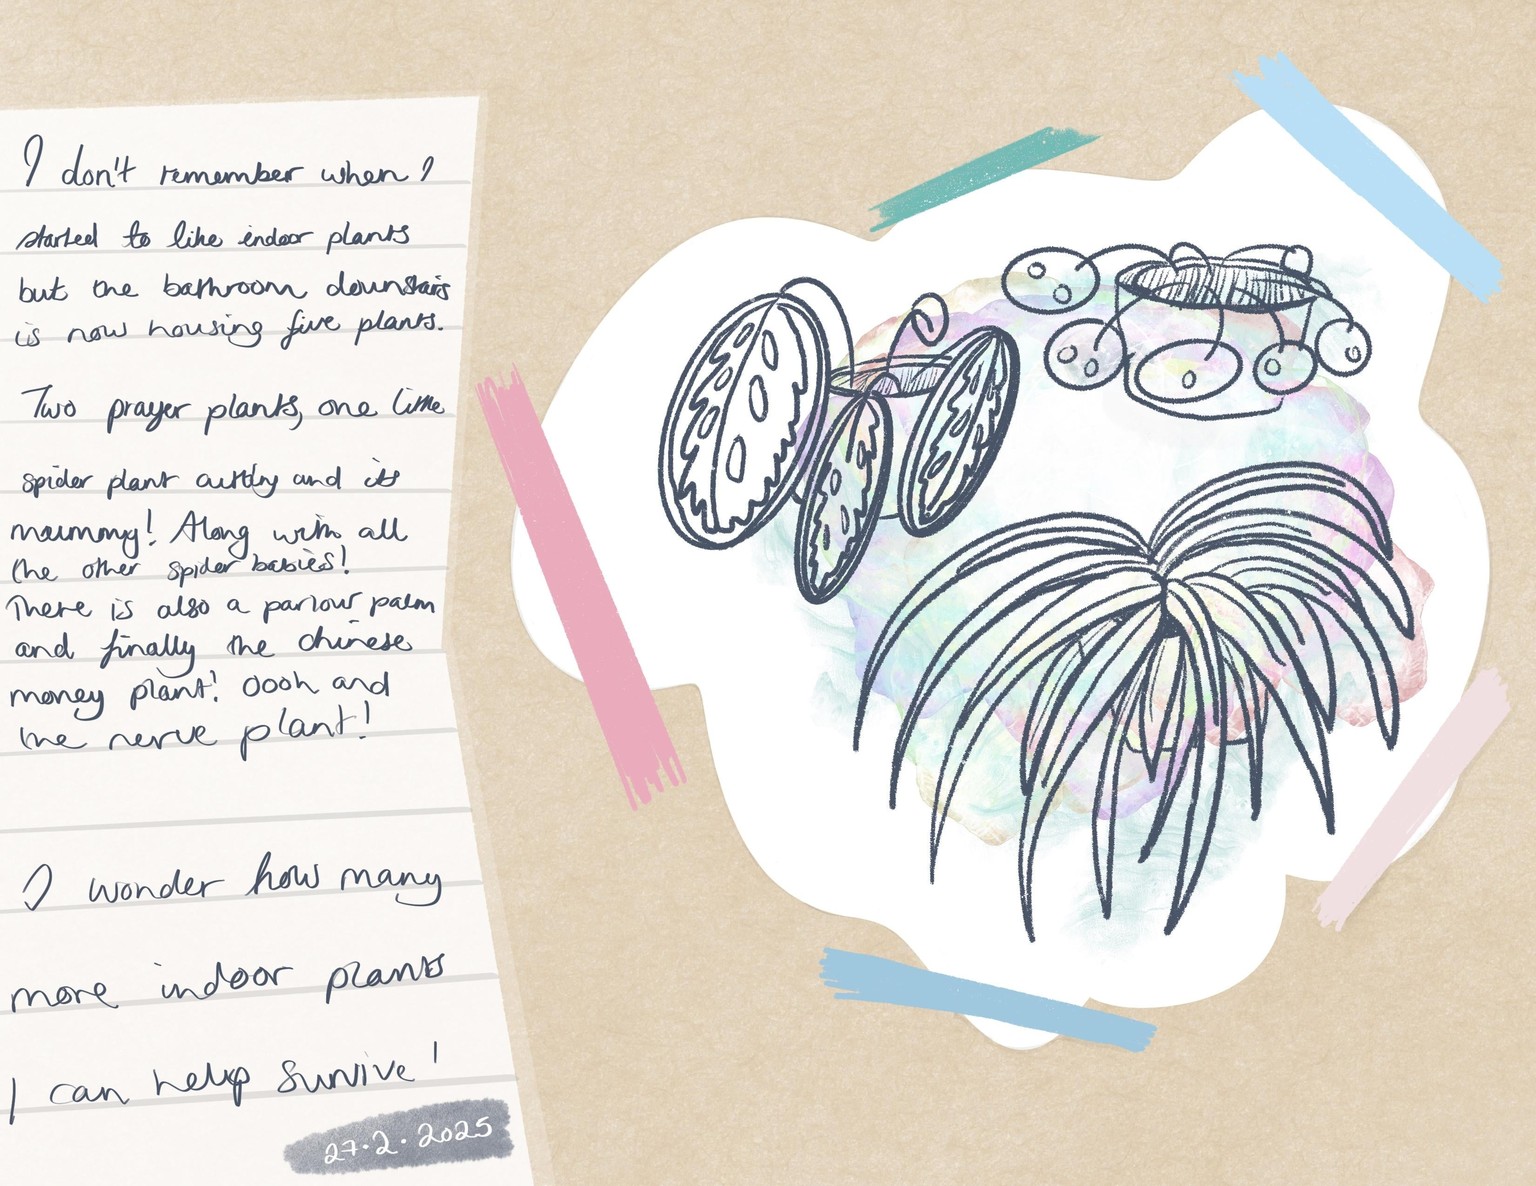 I don't remember when I
started to like indoor plants
but the bathroom downstairs
is now housing five plants.
Two prayer plants, one little
spider plant cutting and its
mummy! Along with all
the other spider babies!
There is also a parlour palm
and finally the chinese
money plant! Oooh and
the nerve plant!
I wonder how many
more indoor plants
I can help survive!
27.2.2025